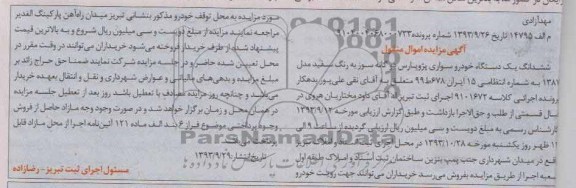 مهدآزادی
م الف ۱۴۷۹۵ تاریخ ۱۳۹۳/۹/۲۶ شماره پرونده
آگهی مزایده اموال منقول
ششدانگ یک دستگاه خودرو سواری پژوپارس دو گانه سوز به رنگ سفید مدل
۱۳۸۱ به شماره انتظامی ۱۵ ایران ۶۷۸ط۹۹ متعلق به آقای تقی علی پور بدهکار
پرونده اجرائی کلاسه ۹۱۰۱۶۷۲ اجرای ثبت تبریز آقای داود مختاریان هروی در
قبال قسمتی از طلب و حق‌الاجرا بازداشت و طبق گزارش ارزیابی مورخه ۱۳۹۳/۹/۱۲
کارشناس رسمی به مبلغ دویست و سی میلیون ریال ارزیابی گردیده از ساعت ۹ الی
۱۲ ظهر روز یکشنبه مورخه ۱۳۹۳/۱۰/۲۸ در محل اجرای
واقع در میدان شهرداری جنب پمپ بنزین ساختمان ثبت اسناد و املاک طبقه اول
شعبه اجرا از طریق مزایده بفروش می‌رسد خریداران می‌توانند جهت رویت خودرو
مورد مزایده به محل توقف خودرو مذکور بنشانی تبریز میدان راه‌آهن پارکینگ الغدیر
مراجعه نمایند مزایده از مبلغ دویست و سی میلیون ریال شروع و به بالاترین قیمت
پیشنهاد شده از طرف خریدار فروخته می‌شود خریداران می‌توانند در وقت مقرر در
محل تعیین شده حاضر و در جلسه مزایده شرکت نمایند ضمنا حق حراج زائد بر
مبلغ مزایده و بدهی‌های مالیاتی و عوارض شهرداری و نقل و انتقال بعهده خریدار
می‌باشد و چنانچه روز مزایده مصادف با تعطیل باشد روز بعد از تعطیل جلسه مزایده
در همان محل و زمان برگزار خواهد شد و در صورت وجود مازاد حاصل از فروش
وجوه پرداختی موضوع فراز ۶ بند الف ماده ۱۲۱ آئین‌نامه اجرا از محل مازاد قابل
تاریخ انتشار: ۱۳۹۳/۹/۲۹
مسئول اجرای ثبت تبریز - رضازاده